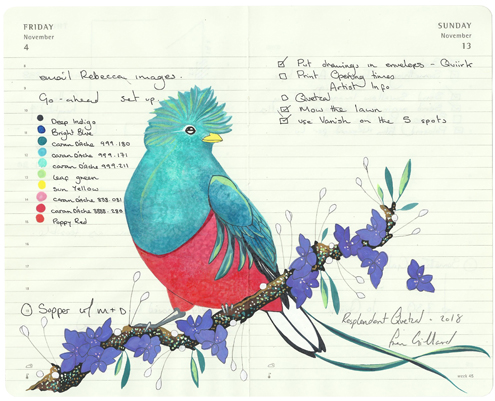 FRIDAY
November
4
email Rebecca images.
Go-ahead set up
Deep Indigo
Bright Blue
caran D'Ache 499.180
caran D'Ache 499.171
caran D'Ache 499.211
Leaf green
Sun Yellow
caran D'Ache 3888.081
caran D'Ache 3888.280
Poppy Red
Supper w/ M+D
SUNDAY
November
13
Put drawings in envelopes - Quiirk
Print Opening times
Artist Info
Quetzal
Mow the lawn
use Vanish on the 5 spots
Resplendent Quetzal - 2018
week 45